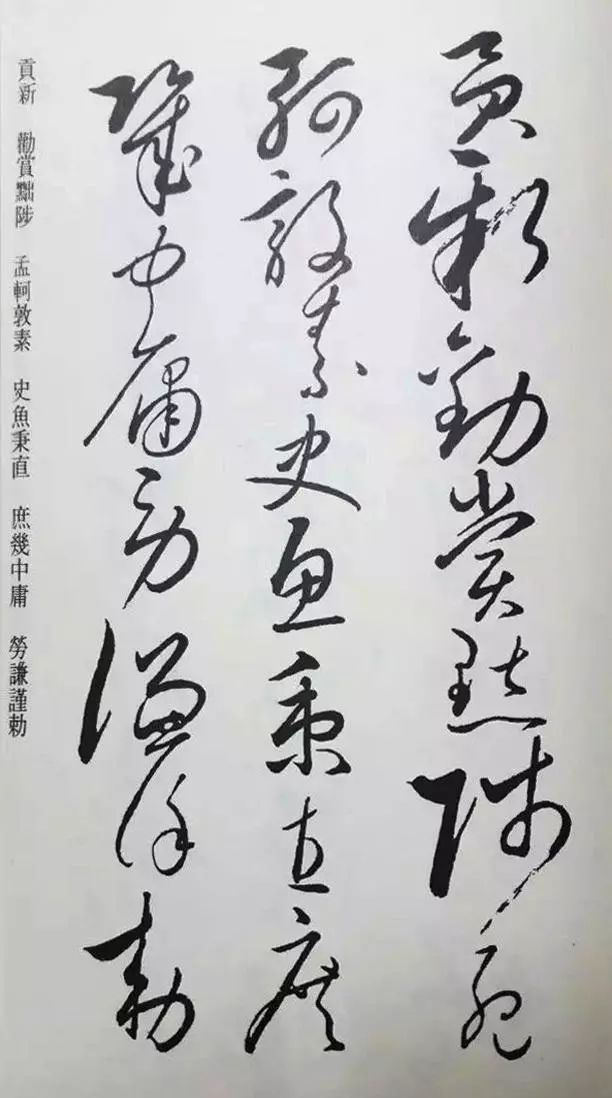 貢新勸賞黜陟孟
軻敦素史魚秉直庶
幾中庸勞謙謹勅
貢新　勸賞黜陟　孟軻敦素　史魚秉直　庶幾中庸　勞謙謹勅